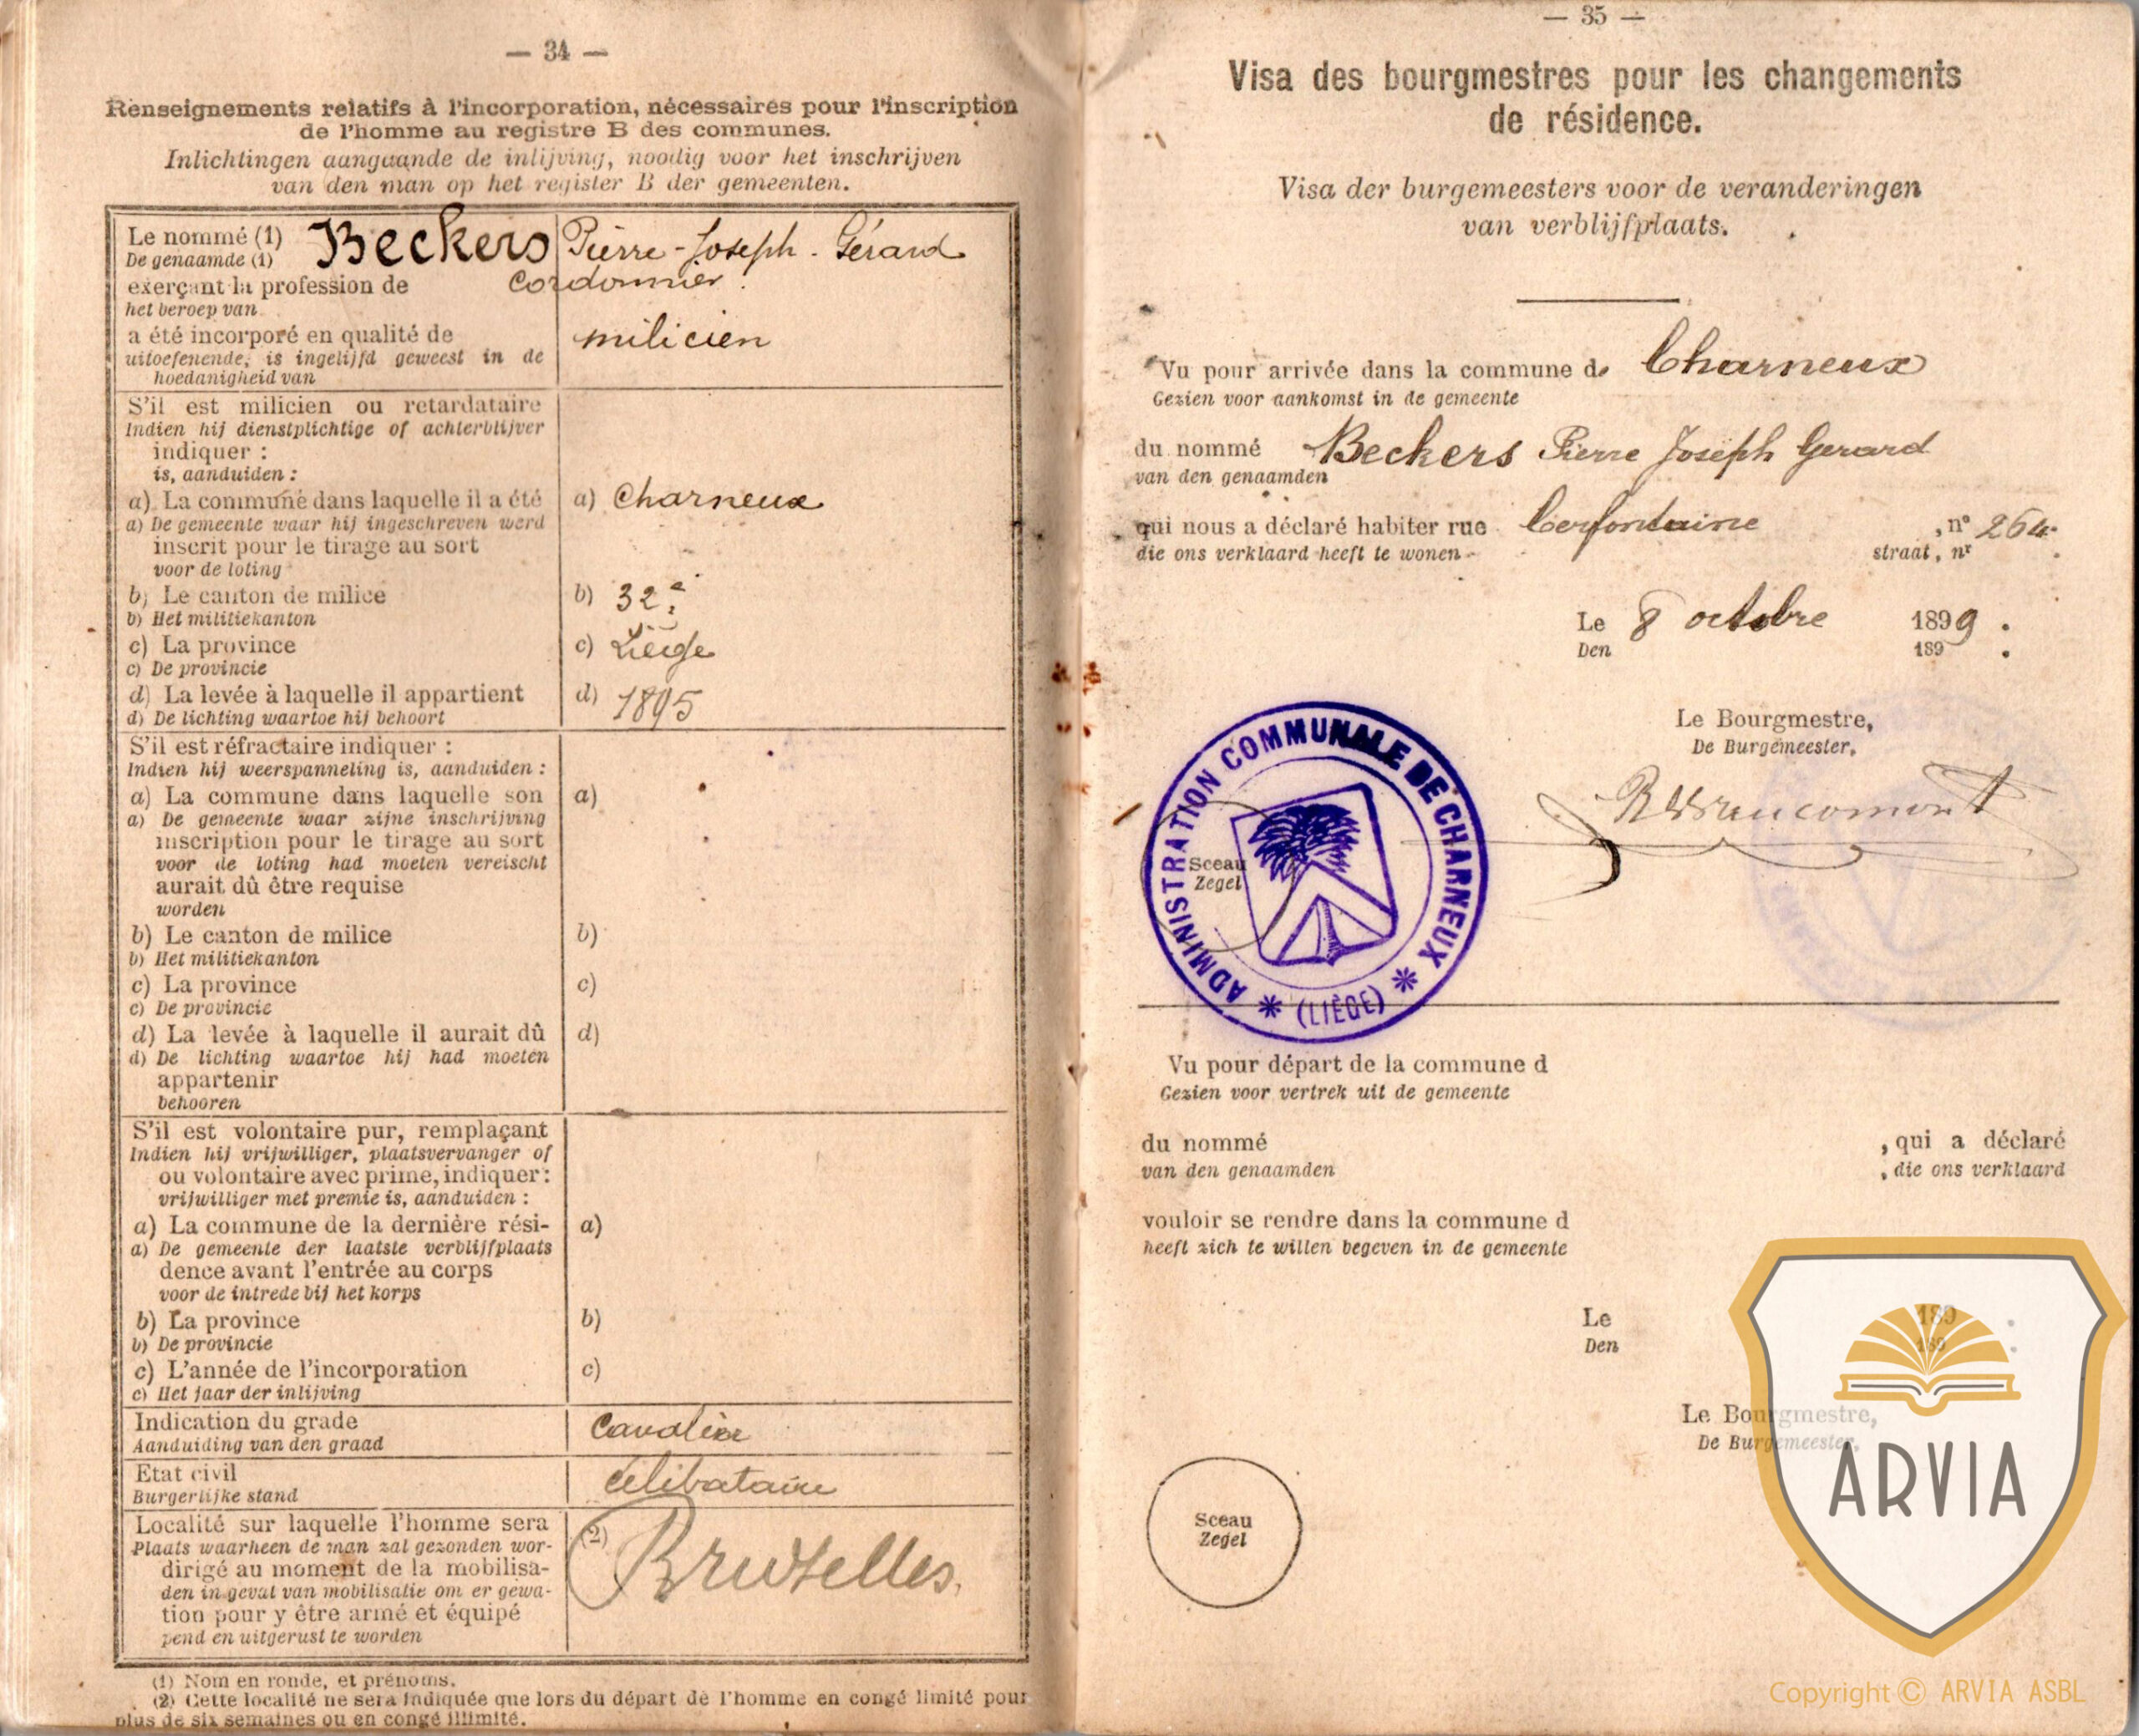 — 34 —
Renseignements relatifs à l'incorporation, nécessaires pour l'inscription
de l'homme au registre B des communes.
Inlichtingen aangaande de inlijving, noodig voor het inschrijven
van den man op het register B der gemeenten.
Le nommé (1) Beckers Pierre-Joseph-Gérard
De genaamde (1)
exerçant la profession de Cordonnier.
het beroep van
a été incorporé en qualité de milicien
uitoefenende, is ingelijfd geweest in de
hoedanigheid van
S'il est milicien ou retardataire
Indien hij dienstplichtige of achterblijver
indiquer :
is, aanduiden :
a) La commune dans laquelle il a été a) Charneux
a) De gemeente waar hij ingeschreven werd
inscrit pour le tirage au sort
voor de loting
b) Le canton de milice b) 32e
b) Het militiekanton
c) La province c) Liège
c) De provincie
d) La levée à laquelle il appartient d) 1895
d) De lichting waartoe hij behoort
S'il est réfractaire indiquer :
Indien hij weerspanneling is, aanduiden :
a) La commune dans laquelle son a)
a) De gemeente waar zijne inschrijving
inscription pour le tirage au sort
voor de loting had moeten vereischt
aurait dû être requise
worden
b) Le canton de milice b)
b) Het militiekanton
c) La province c)
c) De provincie
d) La levée à laquelle il aurait dû d)
d) De lichting waartoe hij had moeten
appartenir
behooren
S'il est volontaire pur, remplaçant
Indien hij vrijwilliger, plaatsvervanger of
ou volontaire avec prime, indiquer :
vrijwilliger met premie is, aanduiden :
a) La commune de la dernière rési- a)
a) De gemeente der laatste verblijfplaats
dence avant l'entrée au corps
voor de intrede bij het korps
b) La province b)
b) De provincie
c) L'année de l'incorporation c)
c) Het jaar der inlijving
Indication du grade Cavalier
Aanduiding van den graad
Etat civil célibataire
Burgerlijke stand
Localité sur laquelle l'homme sera (2) Bruxelles.
Plaats waarheen de man zal gezonden wor-
dirigé au moment de la mobilisa-
den in geval van mobilisatie om er gewa-
tion pour y être armé et équipé
pend en uitgerust te worden
(1) Nom en ronde, et prénoms.
(2) Cette localité ne sera indiquée que lors du départ de l'homme en congé limité pour
plus de six semaines ou en congé illimité.
— 35 —
Visa des bourgmestres pour les changements
de résidence.
Visa der burgemeesters voor de veranderingen
van verblijfplaats.
Vu pour arrivée dans la commune de Charneux
Gezien voor aankomst in de gemeente
du nommé Beckers Pierre Joseph Gerard
van den genaamden
qui nous a déclaré habiter rue Cerfontaine , n° 264
die ons verklaard heeft te wonen straat, nr
Le 8 octobre 1899.
Den 189 .
Le Bourgmestre,
De Burgemeester,
ADMINISTRATION COMMUNALE DE CHARNEUX
* (LIÈGE) *
Sceau
Zegel
Vu pour départ de la commune d
Gezien voor vertrek uit de gemeente
du nommé , qui a déclaré
van den genaamden , die ons verklaard
vouloir se rendre dans la commune d
heeft zich te willen begeven in de gemeente
Le 189 .
Den 189 .
Le Bourgmestre,
De Burgemeester,
Sceau
Zegel
ARVIA
Copyright © ARVIA ASBL